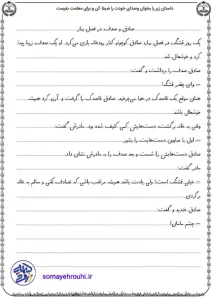 داستان زیر را بخوان وصدای خودت را ضبط کن و برای معلمت بفرست
صادق و صدف در فصل بهار
یک روز قشنگ در فصل بهار، صادق کوچولو کنار رودخانه بازی می‌کرد. او یک صدف زیبا پیدا
کرد و خوشحال شد.
صادق صدف را برداشت و گفت:
— وای چقدر قشنگ!
همان موقع یک قاصدک در هوا می‌چرخید. صادق قاصدک را گرفت و آرزو کرد همیشه
شاد باشد.
وقتی به خانه برگشت، دست‌هایش کمی کثیف شده بود. مادرش گفت:
— اول با صابون دست‌هایت را بشور.
صادق دست‌هایش را شست و بعد صدف را به مادرش نشان داد.
مادر گفت:
— خیلی قشنگ است! ولی یادت باشد همیشه مراقب باشی که تصادف نکنی و سالم به خانه
برگردی.
صادق خندید و گفت:
— چشم مامان!
somayehrouhi.ir